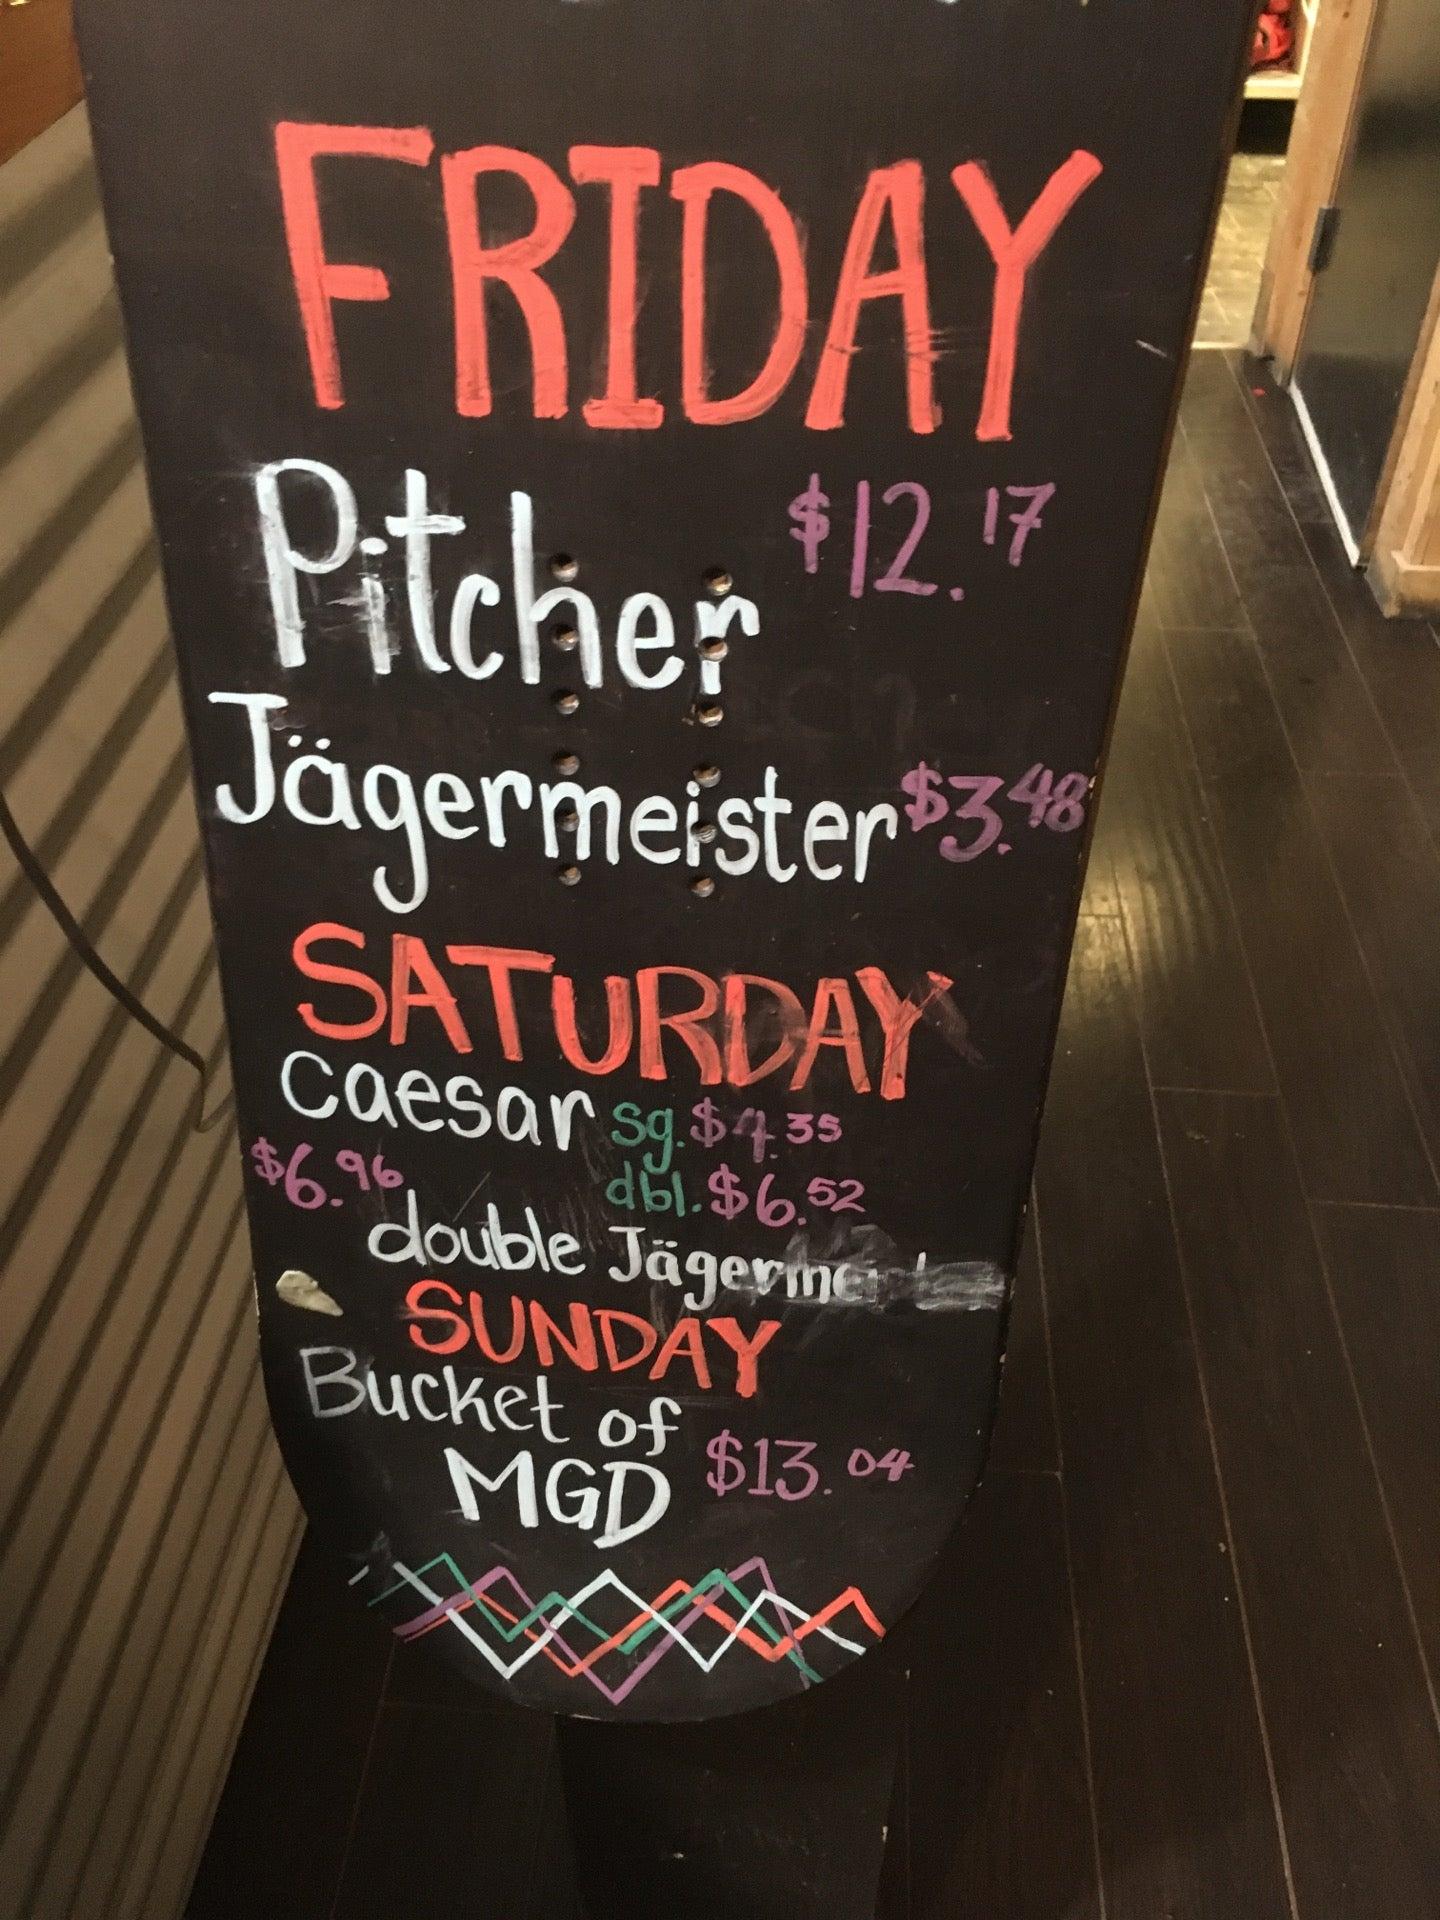 FRIDAY
Pitcher $12.17
Jägermeister $3.48
SATURDAY
Caesar sg. $4.35
dbl. $6.52
$6.96
double Jägermeister
SUNDAY
Bucket of
MGD $13.04